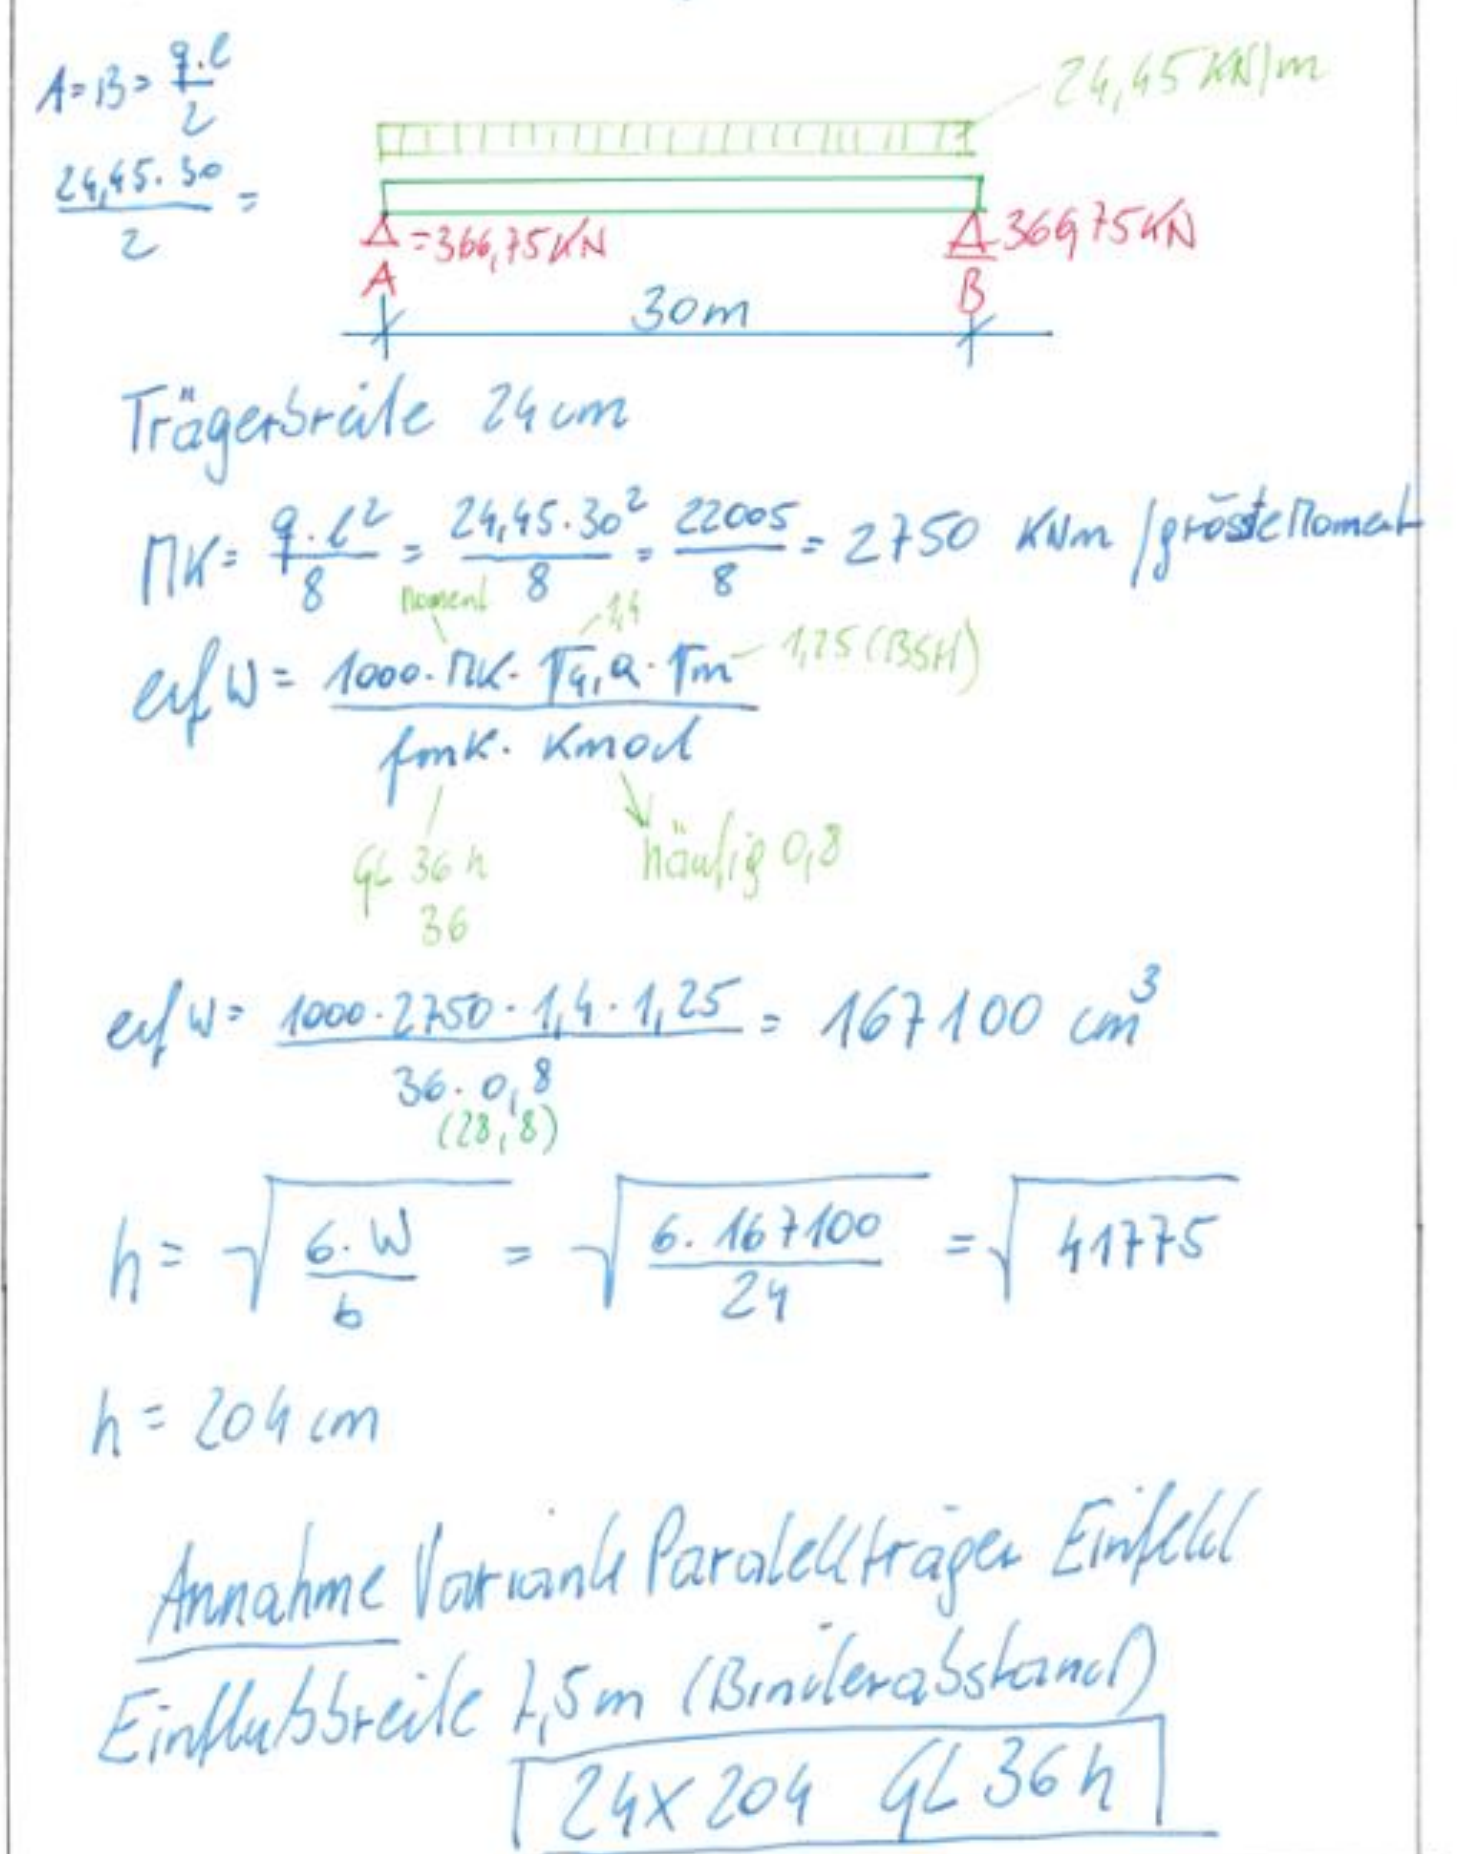 A=B= q.l/2
24,45 KN/m
24,45.30/2 =
Δ=366,75KN
Δ 366,75KN
A
B
30m
Trägerbreite 24cm
MK= q.l²/8 = 24,45.30²/8 = 22005/8 = 2750 KNm /grösste Moment
Moment
1,4
erf W= 1000.MK.γG,Q.γm/fmk.Kmod
1,25 (BSH)
GL 36 h
36
häufig 0,8
erf W= 1000.2750.1,4.1,25/36.0,8 = 167100 cm³
(28,8)
h= √6.W/b = √6.167100/24 = √41775
h= 204 cm
Annahme Variante Paralellträger Einfeld
Einflußbreite 7,5m (Binderabstand)
24x204 GL 36h